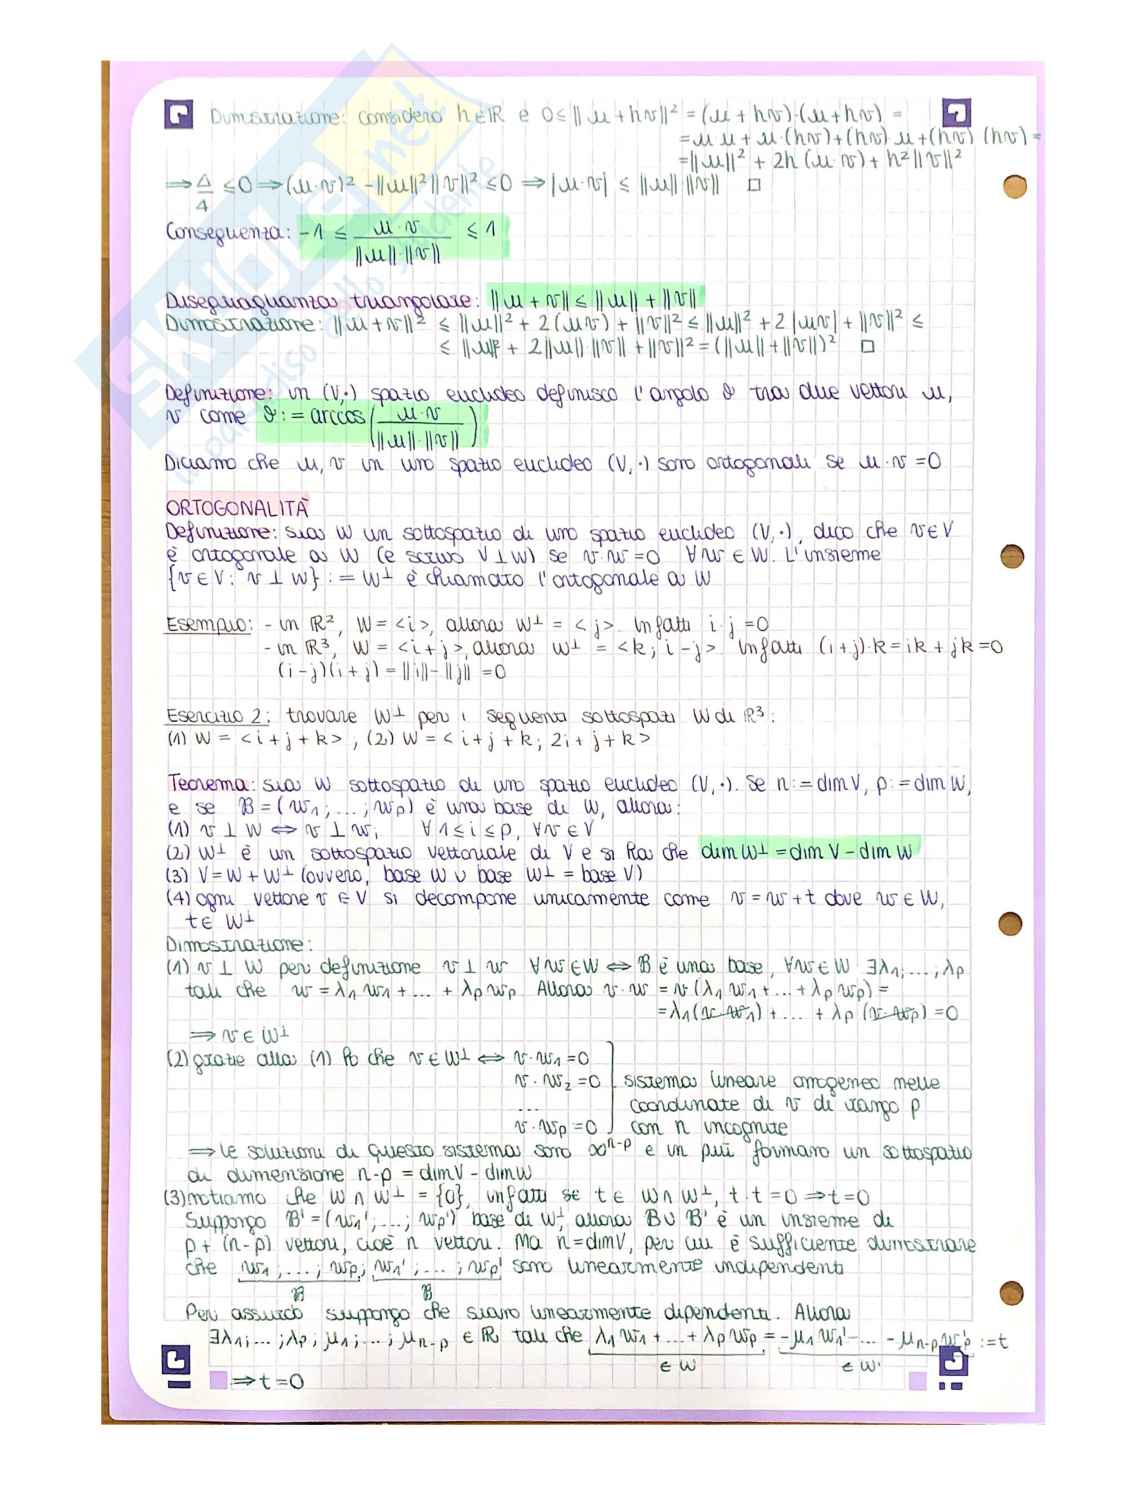 Dimostrazione: considero h∈ℝ e 0≤‖u+hv‖² = (u+hv)·(u+hv) =
= u u + u·(hv)+(hv) u+(hv) (hv) =
= ‖u‖² + 2h (u v) + h²‖v‖²
⟹ Δ/4 ≤0 ⟹ (u·v)² - ‖u‖²‖v‖² ≤0 ⟹ |u·v| ≤ ‖u‖·‖v‖ □
Conseguenza: -1 ≤ u·v / ‖u‖·‖v‖ ≤ 1
Diseguaguanza triangolare: ‖u+v‖ ≤ ‖u‖+‖v‖
Dimostrazione: ‖u+v‖² ≤ ‖u‖² + 2(uv) + ‖v‖² ≤ ‖u‖² +2|uv| + ‖v‖² ≤
≤ ‖u‖² + 2‖u‖ ‖v‖ +‖v‖² = (‖u‖+‖v‖)² □
Definizione: in (V,·) spazio euclideo definisco l'angolo ϑ tra due vettori u,
v come ϑ := arccos( u·v / ‖u‖·‖v‖ )
Diciamo che u,v in uno spazio euclideo (V,·) sono ortogonali se u·v =0
ORTOGONALITÀ
Definizione: sia W un sottospazio di uno spazio euclideo (V,·), dico che v∈V
è ortogonale a W (e scrivo V⊥W) se v·w=0 ∀w∈W. L'insieme
{v∈V: v⊥W} := W⊥ è chiamato l'ortogonale a W
Esempio: - in ℝ², W=<i>, allora W⊥ = <j>. Infatti i·j=0
- in ℝ³, W = <i+j>, allora W⊥ = <k; i-j> infatti (i+j)·k=ik+jk=0
(i-j)(i+j) = ‖i‖-‖j‖ =0
Esercizio 2: trovare W⊥ per i seguenti sottospazi W di ℝ³:
(1) W = <i+j+k>, (2) W = <i+j+k; 2i+j+k>
Teorema: sia W sottospazio di uno spazio euclideo (V,·). Se n:=dimV, p:=dimW,
e se B=(w₁;...;wp) è una base di W, allora:
(1) v⊥W ⟺ v⊥wᵢ ∀1≤i≤p, ∀v∈V
(2) W⊥ è un sottospazio vettoriale di V e si ha che dimW⊥ = dimV - dimW
(3) V=W+W⊥ (ovvero, base W ∪ base W⊥ = base V)
(4) ogni vettore v∈V si decompone unicamente come v=w+t dove w∈W,
t∈W⊥
Dimostrazione:
(1) v⊥W per definizione v⊥w ∀w∈W ⟺ B è una base, ∀w∈W ∃λ₁;...;λp
tali che w=λ₁w₁+...+λpwp. Allora v·w = v(λ₁w₁+...+λpwp) =
=λ₁(v·w₁)+...+λp(v·wp)=0
⟹ v∈W⊥
(2) grazie alla (1) ho che v∈W⊥ ⟺ v·w₁=0
v·w₂=0 sistema lineare omogeneo nelle
... coordinate di v di rango p
v·wp=0 con n incognite
⟹ le soluzioni di questo sistema sono ∞ⁿ⁻ᵖ e in più formano un sottospazio
di dimensione n-p = dimV-dimW
(3) notiamo che W∩W⊥ = {0}, infatti se t∈W∩W⊥, t·t=0 ⟹ t=0
Suppongo B'=(w₁';...;wp') base di W⊥, allora B∪B' è un insieme di
p+(n-p) vettori, cioè n vettori. Ma n=dimV, per cui è sufficiente dimostrare
che w₁,...;wp; w₁';...;wp' sono linearmente indipendenti
B B
Per assurdo suppongo che siano linearmente dipendenti. Allora
∃λ₁;...;λp;μ₁;...;μn-p ∈ℝ tali che λ₁w₁+...+λpwp = -μ₁w₁'-...-μn-pw'p :=t
∈W ∈W'
⟹ t=0